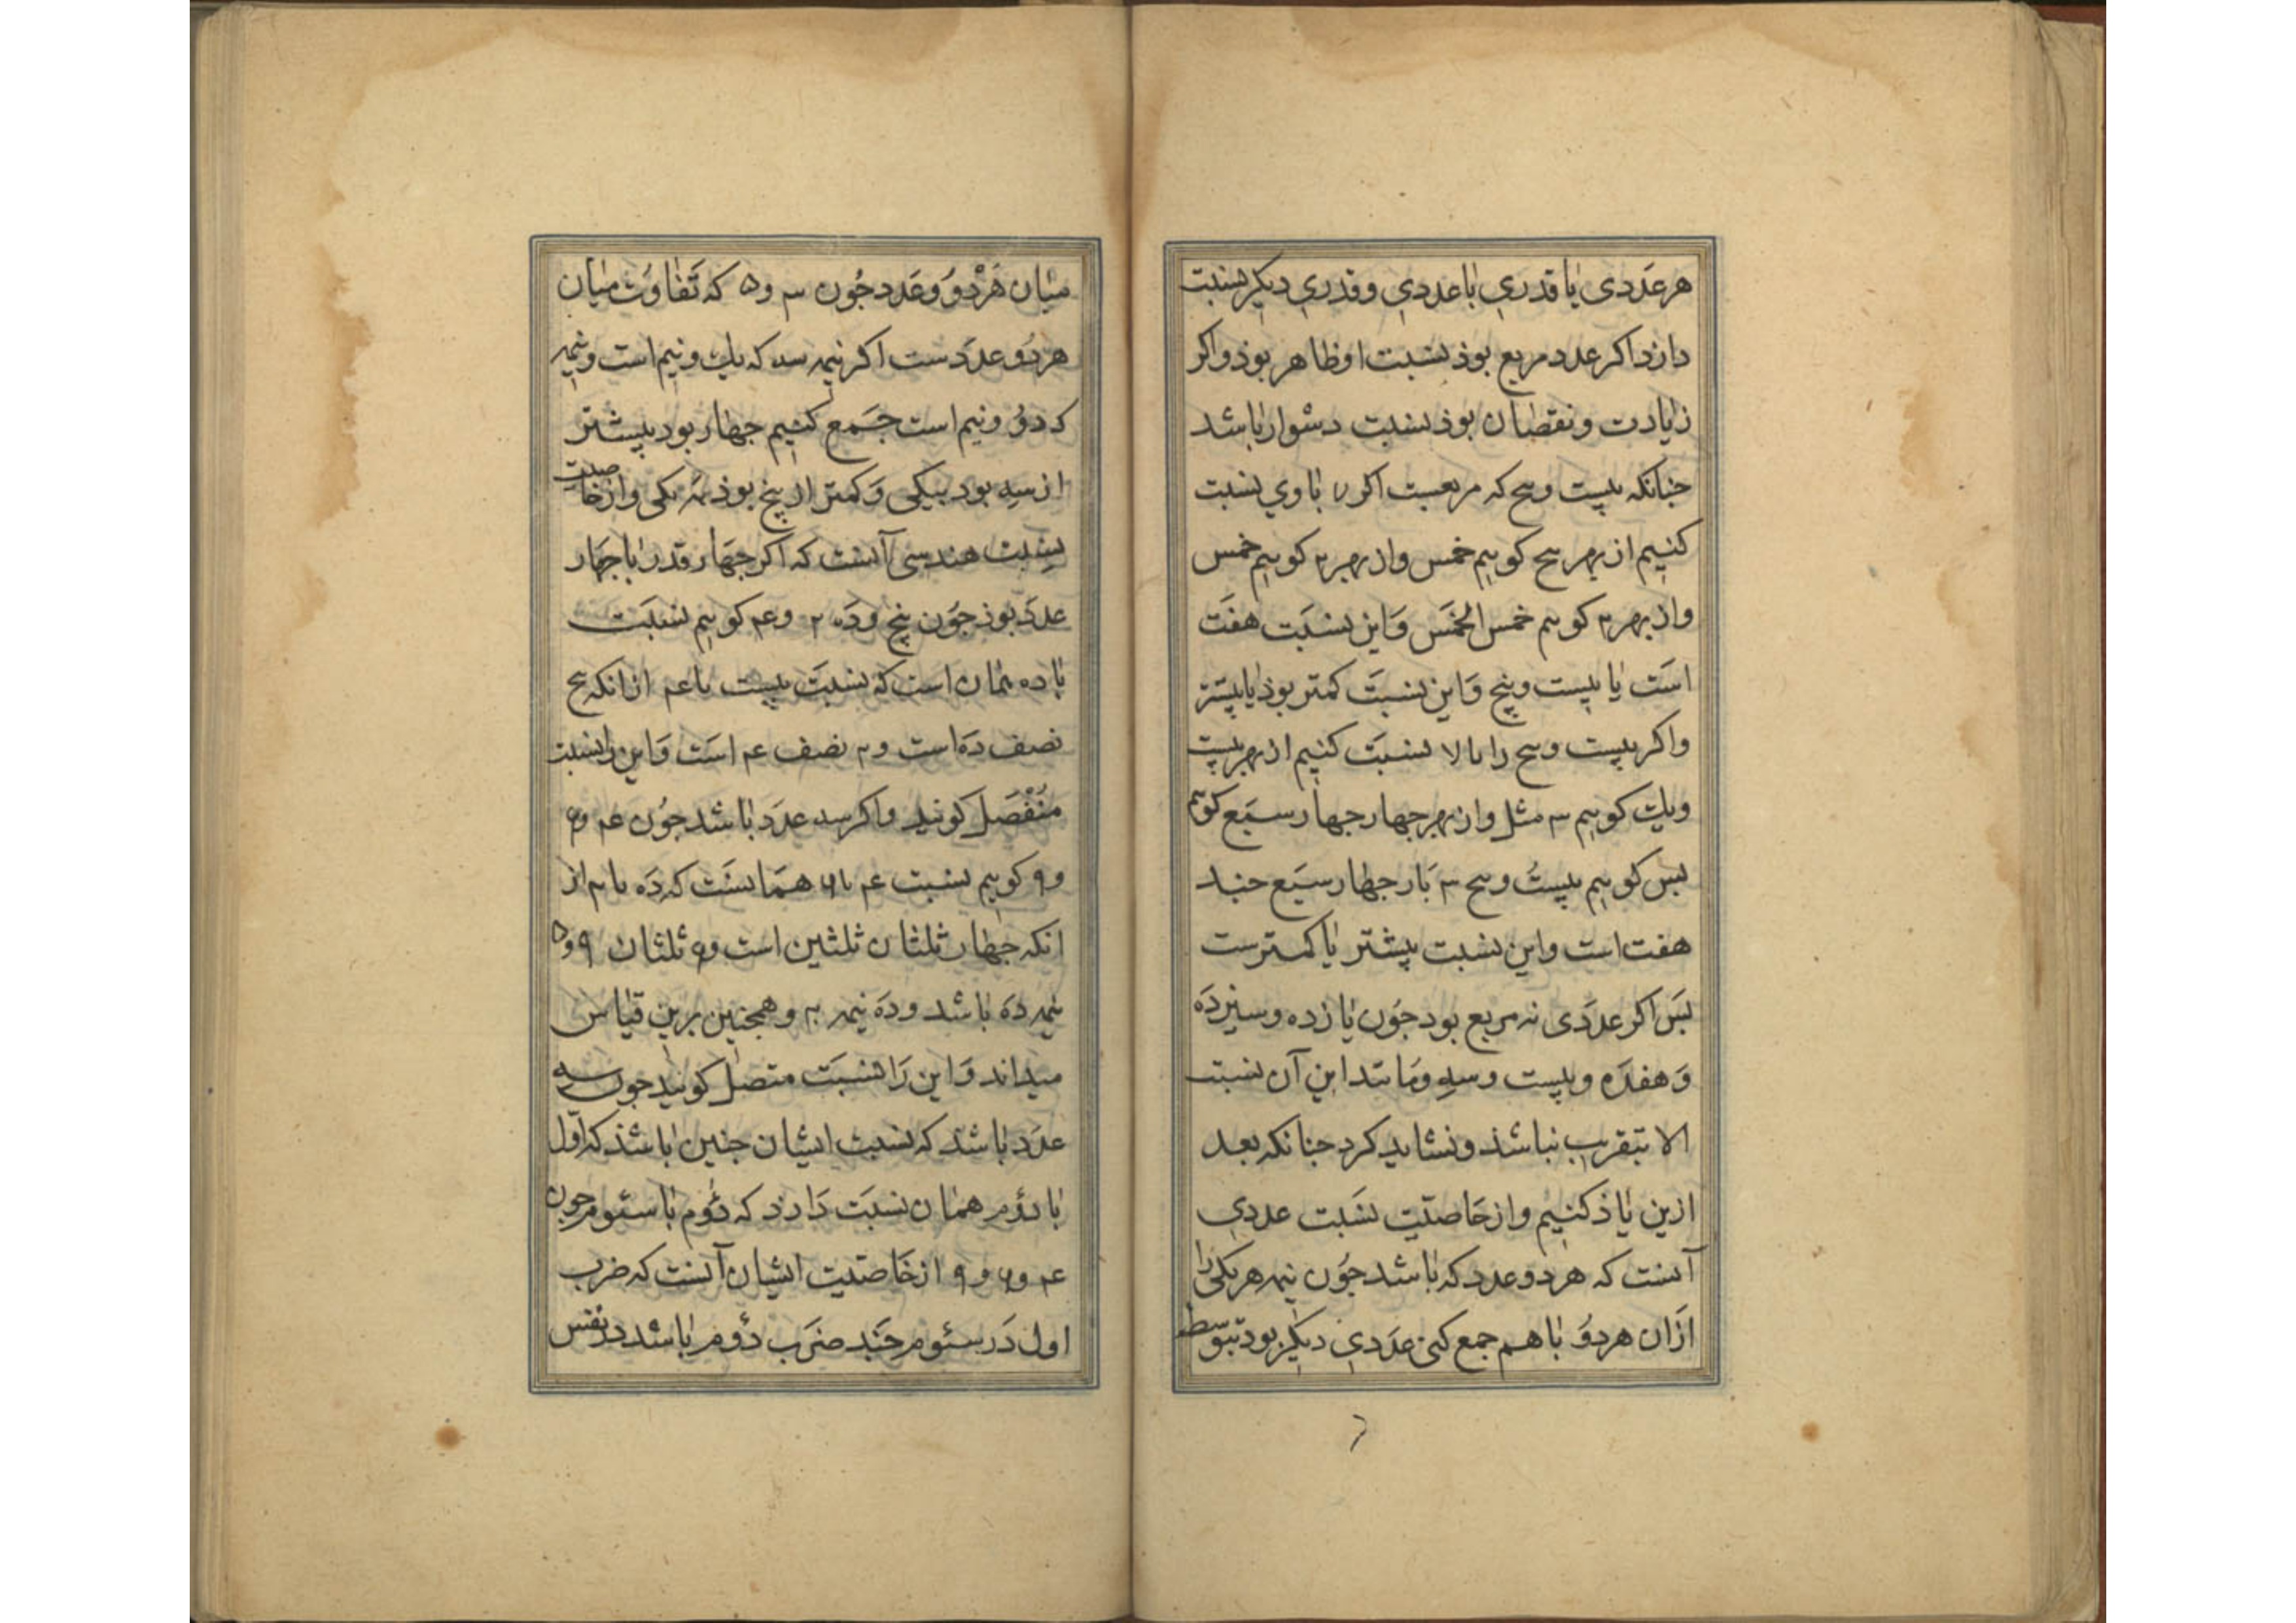 هر عددی یا قدری با عددی و قدری دیگر نسبت
دارد اکر عدد مربع بوذ نسبت او ظاهر بوذ واکر
زیادت و نقصان بوذ نسبت دشوار باشد
جنانکه بیست وپنج که مربعست اکر ۷ با وی نسبت
کنیم از بهر پنج کوییم خمس واز بهر ۲ کوییم خمس
واز بهر ۲ کوییم خمس الخمس وَاین نسبَت هفت
است یا بیست وپنج وَاین نسبَت کمتر بوذ یا بیشتر
واکر بیست وپنج را با ۷ نسبَت کنیم از بهر بیست
ویك کوییم ۳ مثل واز بهر جهار جهار سبع کوییم
بس کوییم بیست وپنج ۳ بَار جهار سبع جند
هفت است واین نسبت بیشتر یا کمترست
بس اکر عددی نه مربع بود جون یازده وسیزدَه
وَهفده وبیست وسه ومَانند این آن نسبت
الا بتقریب نباشذ ونشاید کرد جنانکه بعد
ازین یاذ کنیم واز خاصیّت نسَبت عددی
آنست که هر دو عدد که باشد جُون نیمه هر یکی را
ازان هردُو باهم جمع کنی عدَدی دیکر بود متوسط
میان هَرْدُو وعَدد جُون ۳ و ۵ که تَفاوُت میان
هردُو عدَدست اکر نیمه سه که یك ونیم است ونیمه
که دوُ ونیم است جَمع کنیم جهار بود بیشتر
از سه بود بیکی وَکمتر از پنج بوذ هم بیکی واز خاصیت
نسبت هندسی آنست که اکر جهَار قدر با جهَار
عدَد بوذ جوُن پنج ودَه ۲ و ۴ کوییم نسبَت
با ده همان است که نسبَت بیست با ۴ ازانکه پنج
نصف دَه است و ۲ نصف ۴ است وَاین را نسبت
مُنْفَصَل کویند واکر سه عدَد باشد جوُن ۴ و ۶
و ۹ کوییم نسبت ۴ با ۶ همَانست که دَه با ۲۰ از
انکه جهار ثلثان ثلثین است و ۶ ثلثان ۹ و ۵
نیمه دَه باشد ودَه نیمه ۲۰ وهمجنین برین قیاس
میداند وَاین رَا نسبَت متصل کویند جون سه
عدَد باشد که نسبت ایشان جنین باشذ که اوّل
با دوُم همان نسبَت دَارد که دوُم با سئوم جون
۴ و ۶ و ۹ از خاصیّت ایشان آنست که ضرب
اول دَر سئوم جَند ضرَب دوُم باشد در نفس